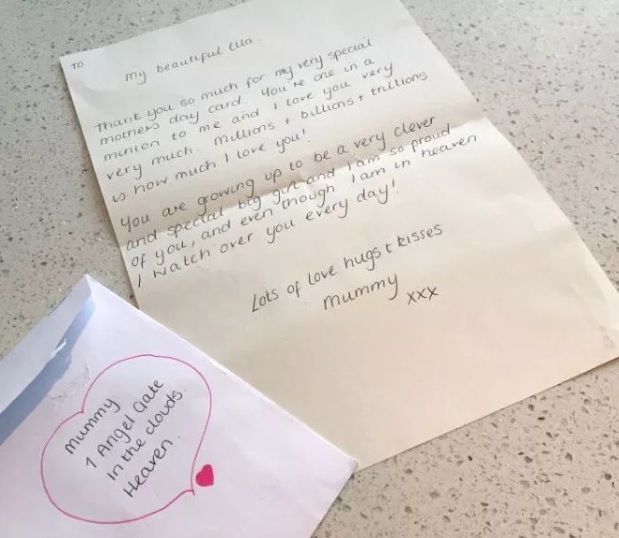 TO
my beautiful Ella.
Thank you so much for my very special
mothers day card. You're one in a
million to me and I love you very
very much. Millions + billions + trillions
is how much I love you!
You are growing up to be a very clever
and special big girl and I am so proud
of you, and even though I am in heaven
I watch over you every day!
Lots of love hugs + kisses
mummy xxx
mummy
1 Angel Gate
In the clouds
Heaven.